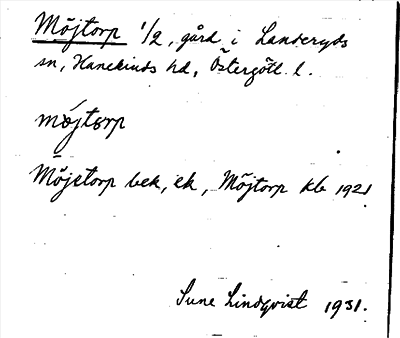 Möjtorp 1/2, gård i Landeryds
sn, Hanekinds hd, Östergötl. l.
mø̄jtɷrp
Möjetorp bek, ek, Möjtorp kb 1921
Sune Lindqvist 1931.